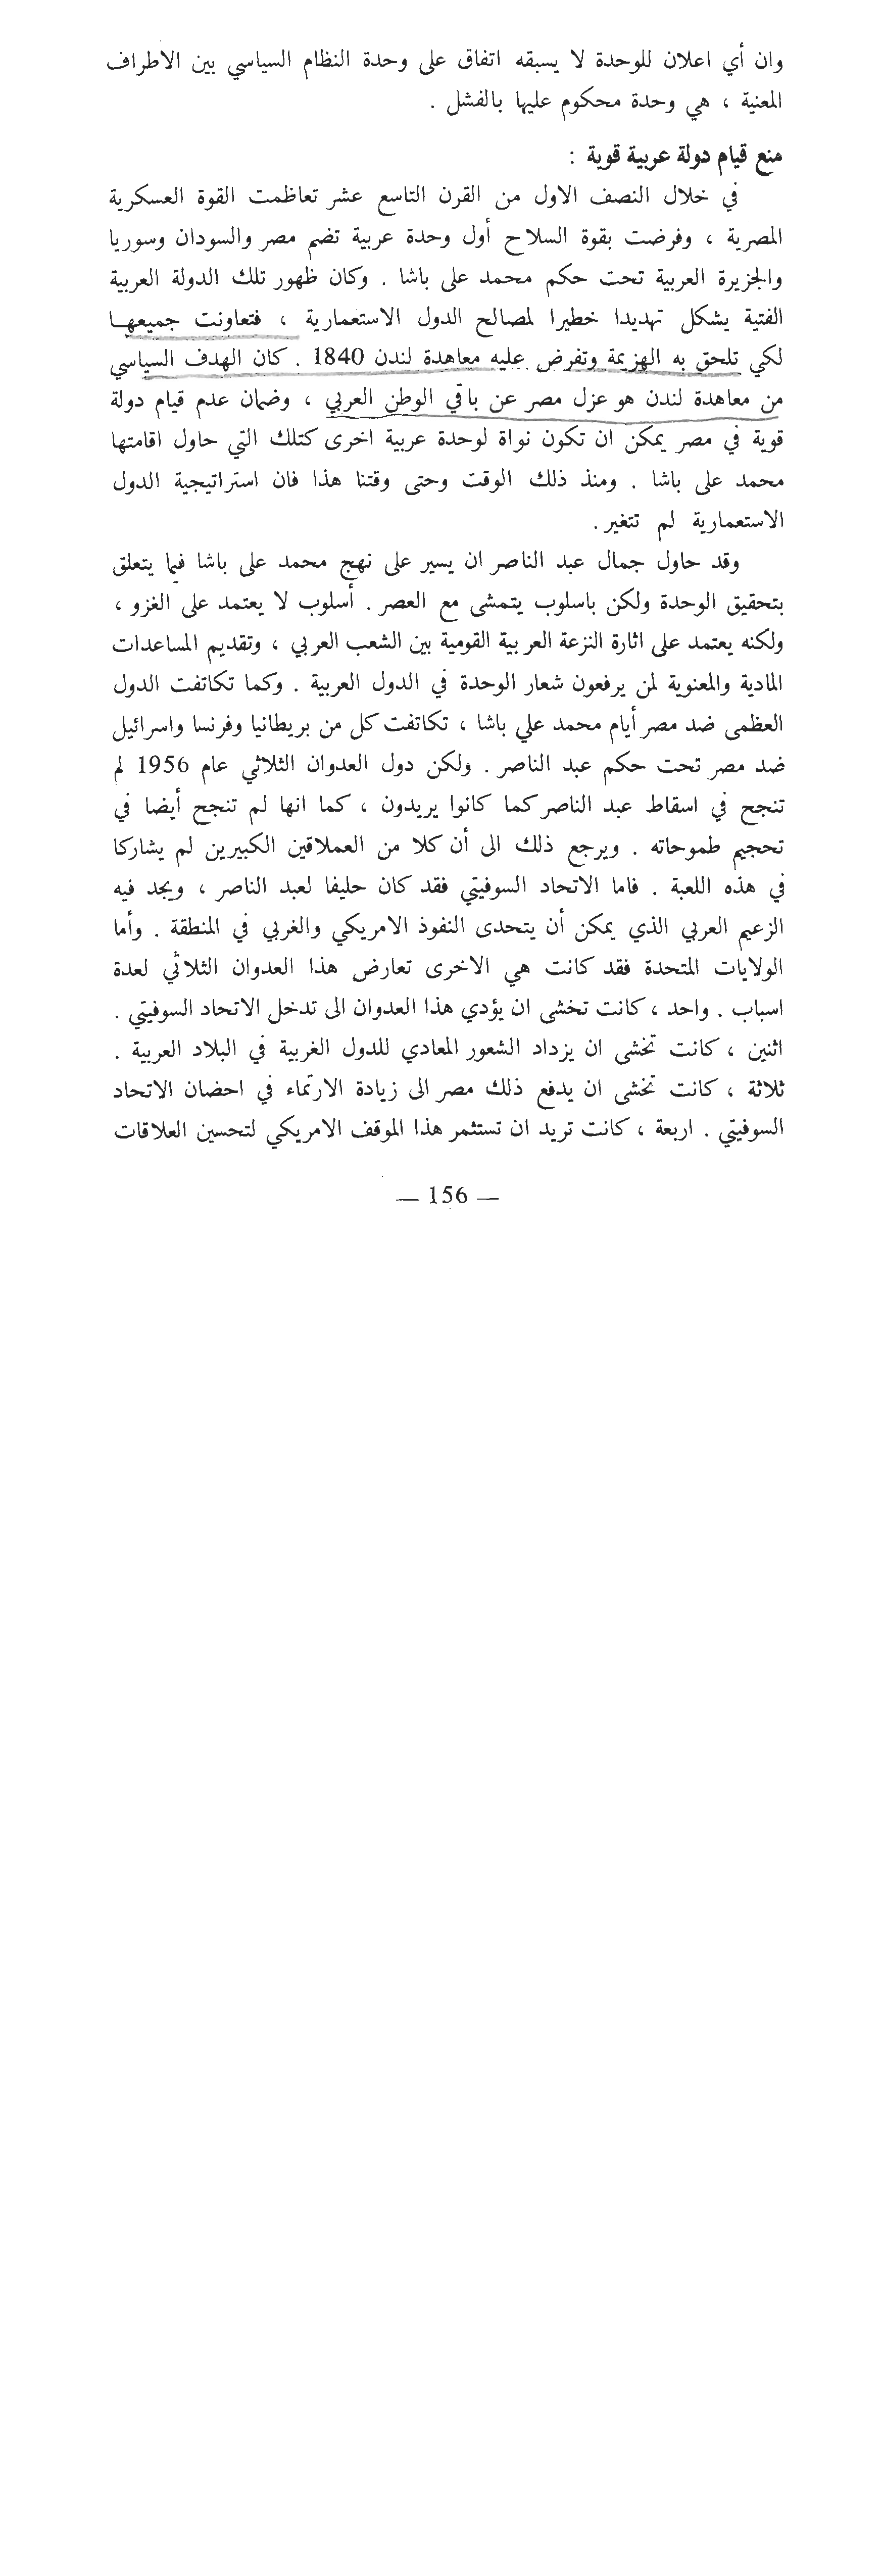 وان أي اعلان للوحدة لا يسبقه اتفاق على وحدة النظام السياسي بين الاطراف
المعنية ، هي وحدة محكوم عليها بالفشل .
منع قيام دولة عربية قوية :
في خلال النصف الاول من القرن التاسع عشر تعاظمت القوة العسكرية
المصرية ، وفرضت بقوة السلاح أول وحدة عربية تضم مصر والسودان وسوريا
والجزيرة العربية تحت حكم محمد على باشا . وكان ظهور تلك الدولة العربية
الفتية يشكل تهديدا خطيرا لمصالح الدول الاستعمارية ، فتعاونت جميعها
لكي تلحق به الهزيمة وتفرض عليه معاهدة لندن 1840 . كان الهدف السياسي
من معاهدة لندن هو عزل مصر عن باقي الوطن العربي ، وضمان عدم قيام دولة
قوية في مصر يمكن ان تكون نواة لوحدة عربية اخرى كتلك التي حاول اقامتها
محمد على باشا . ومنذ ذلك الوقت وحتى وقتنا هذا فان استراتيجية الدول
الاستعمارية لم تتغير .
وقد حاول جمال عبد الناصر ان يسير على نهج محمد على باشا فيما يتعلق
بتحقيق الوحدة ولكن باسلوب يتمشى مع العصر . أسلوب لا يعتمد على الغزو ،
ولكنه يعتمد على اثارة النزعة العربية القومية بين الشعب العربي ، وتقديم المساعدات
المادية والمعنوية لمن يرفعون شعار الوحدة في الدول العربية . وكما تكاتفت الدول
العظمى ضد مصر أيام محمد علي باشا ، تكاتفت كل من بريطانيا وفرنسا واسرائيل
ضد مصر تحت حكم عبد الناصر . ولكن دول العدوان الثلاثي عام 1956 لم
تنجح في اسقاط عبد الناصر كما كانوا يريدون ، كما انها لم تنجح أيضا في
تحجيم طموحاته . ويرجع ذلك الى أن كلا من العملاقين الكبيرين لم يشاركا
في هذه اللعبة . فاما الاتحاد السوفيتي فقد كان حليفا لعبد الناصر ، ويجد فيه
الزعيم العربي الذي يمكن أن يتحدى النفوذ الامريكي والغربي في المنطقة . وأما
الولايات المتحدة فقد كانت هي الاخرى تعارض هذا العدوان الثلاثي لعدة
اسباب . واحد ، كانت تخشى ان يؤدي هذا العدوان الى تدخل الاتحاد السوفيتي .
اثنين ، كانت تخشى ان يزداد الشعور المعادي للدول الغربية في البلاد العربية .
ثلاثة ، كانت تخشى ان يدفع ذلك مصر الى زيادة الارتماء في احضان الاتحاد
السوفيتي . اربعة ، كانت تريد ان تستثمر هذا الموقف الامريكي لتحسين العلاقات
— 156 —